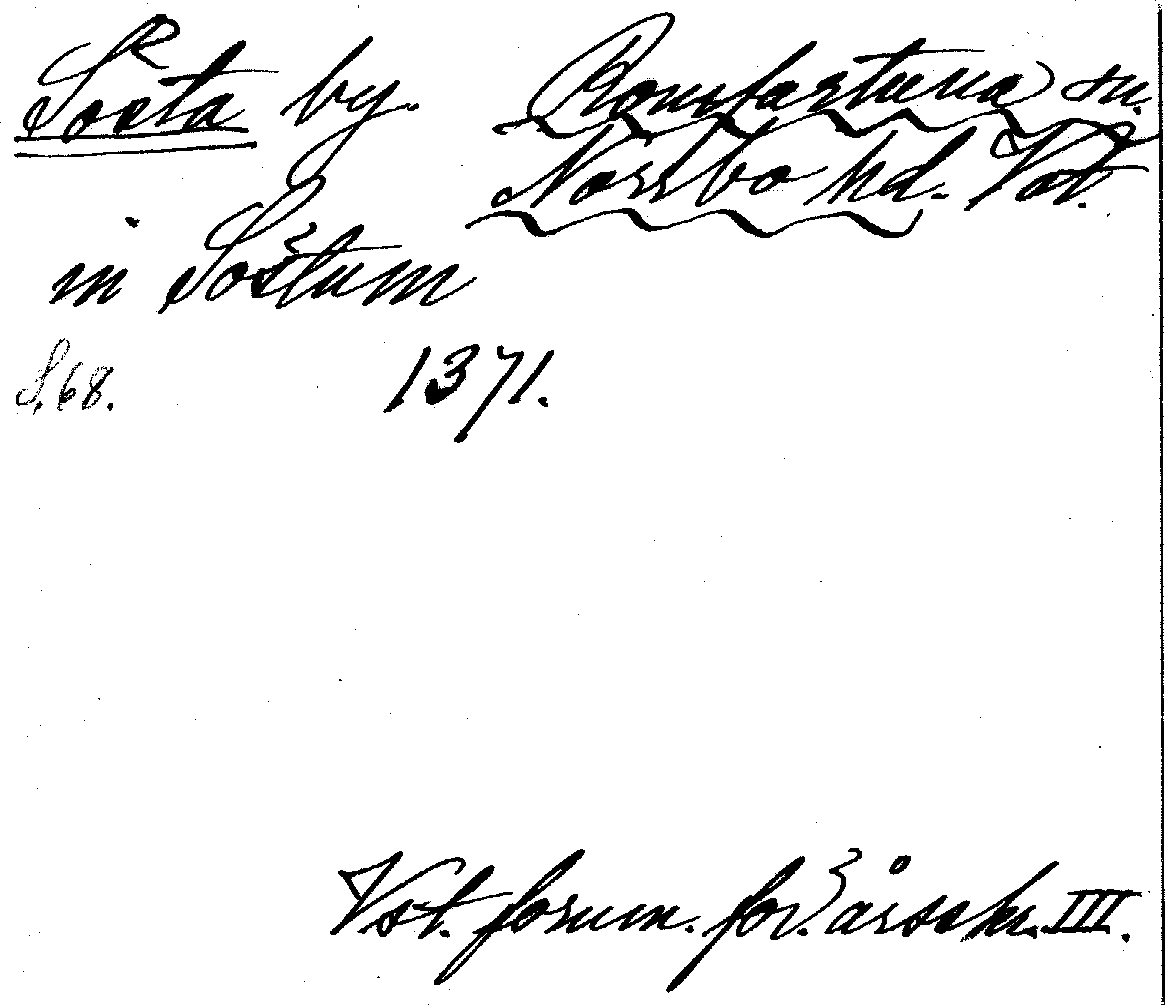 Sösta by. Romfartuna sn.
Norrbo hd. Vst.
in Söstum
S. 68. 1371.
Vst. fornm. för. årsskr. III.